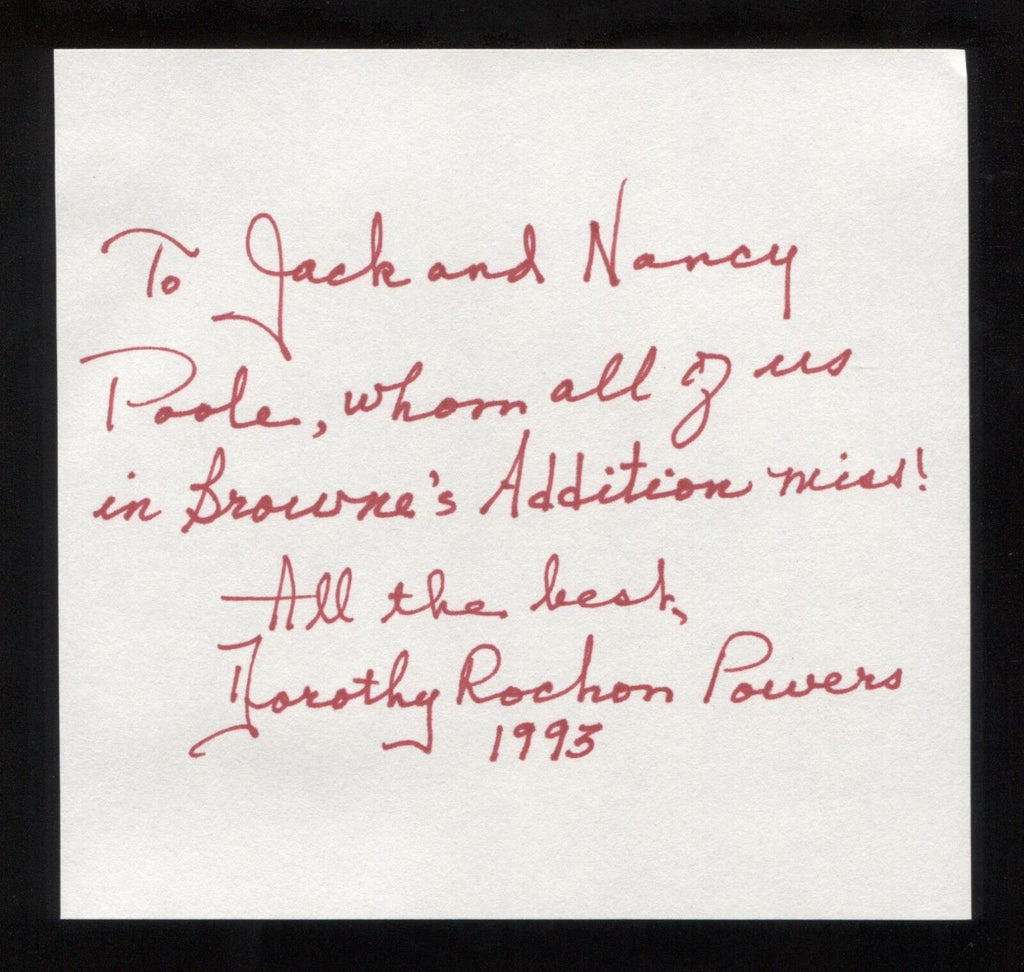 To Jack and Nancy
Poole, whom all of us
in Browne's Addition miss!
All the best,
Dorothy Rochon Powers
1993